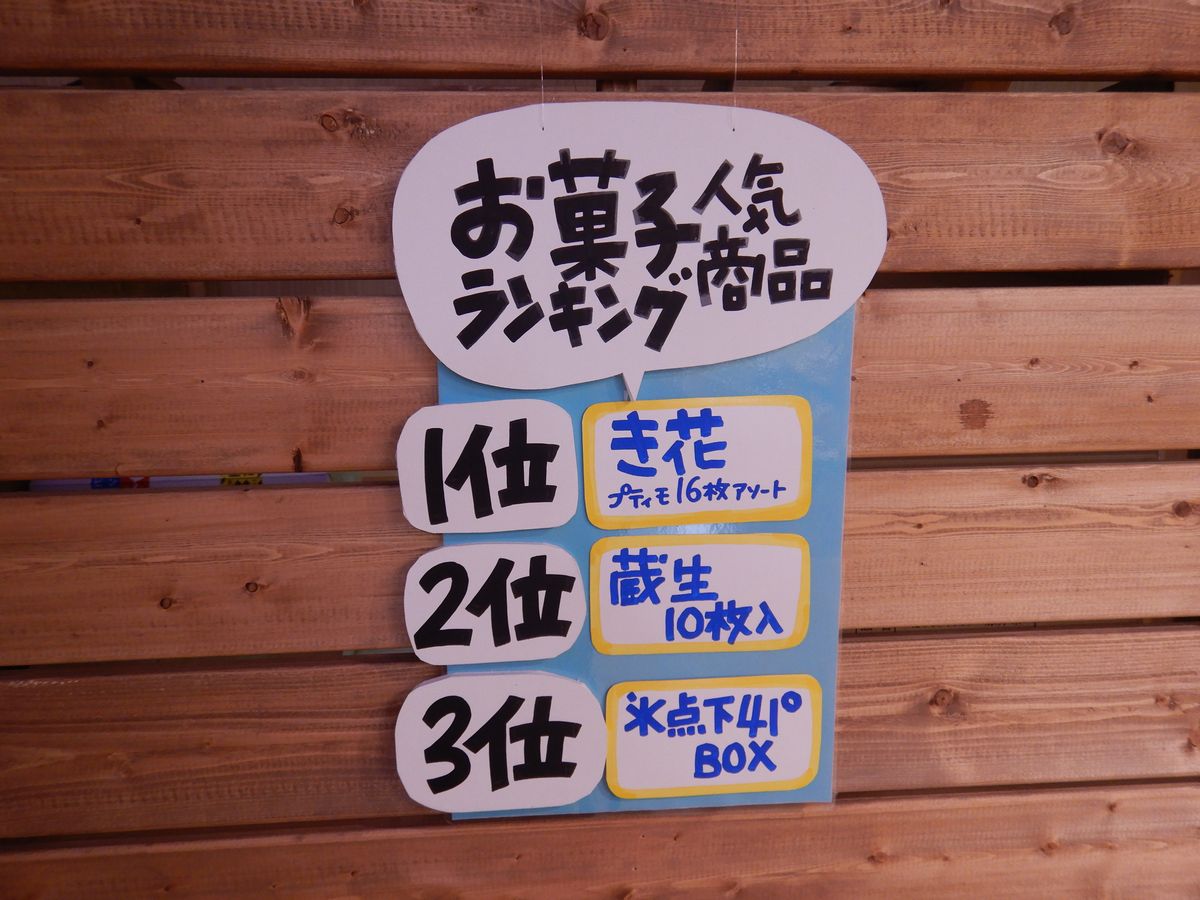 お菓子人気
ランキング商品
1位
き花
プティモ16枚アソート
2位
蔵生
10枚入
3位
氷点下41°
BOX